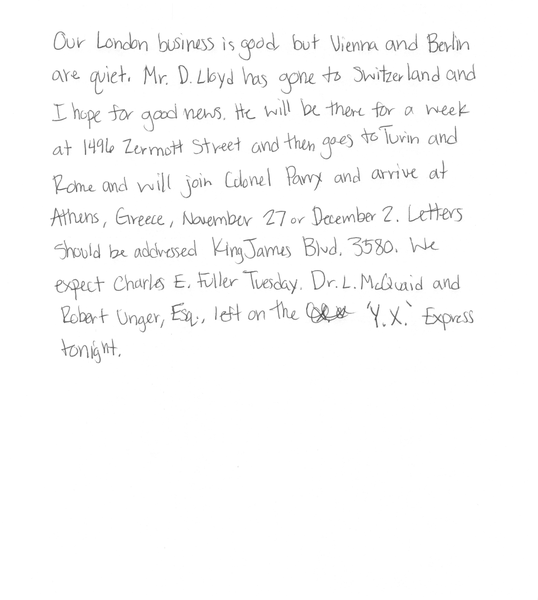 Our London business is good but Vienna and Berlin
are quiet. Mr. D. Lloyd has gone to Switzerland and
I hope for good news. He will be there for a week
at 1496 Zermott Street and then goes to Turin and
Rome and will join Colonel Parry and arrive at
Athens, Greece, November 27 or December 2. Letters
Should be addressed King James Blvd. 3580. We
expect Charles E. Fuller Tuesday. Dr. L. McQuaid and
Robert Unger, Esq., left on the 'Y.X.' Express
tonight.